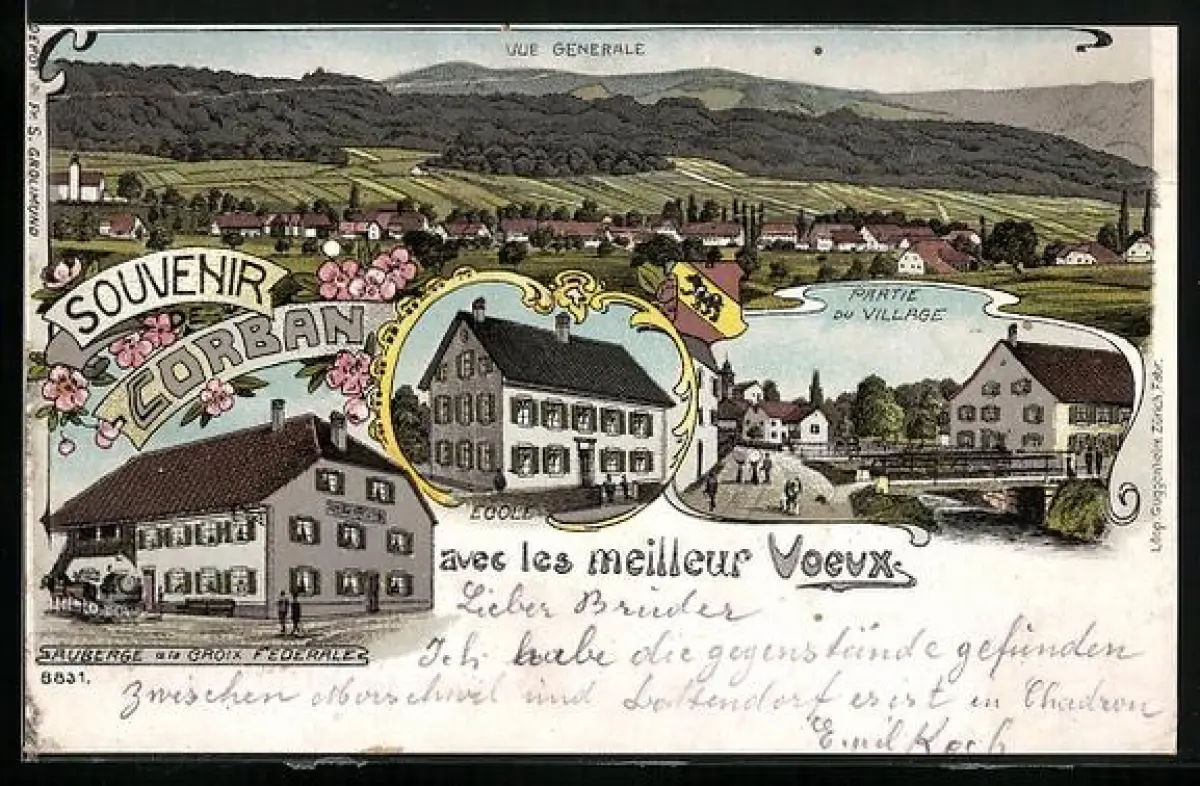 VUE GENERALE
SOUVENIR
CORBAN
PARTIE
DU VILLAGE
ECOLE
avec les meilleur Voeux
AUBERGE CROIX FEDERALE
8831.
Lieber Bruder
Ich habe die gegenstände gefunden
zwischen und es ist Chadron
Emil Koch
S. GROLIMUND
Léop. Guggenheim, Zürich, Fabr.